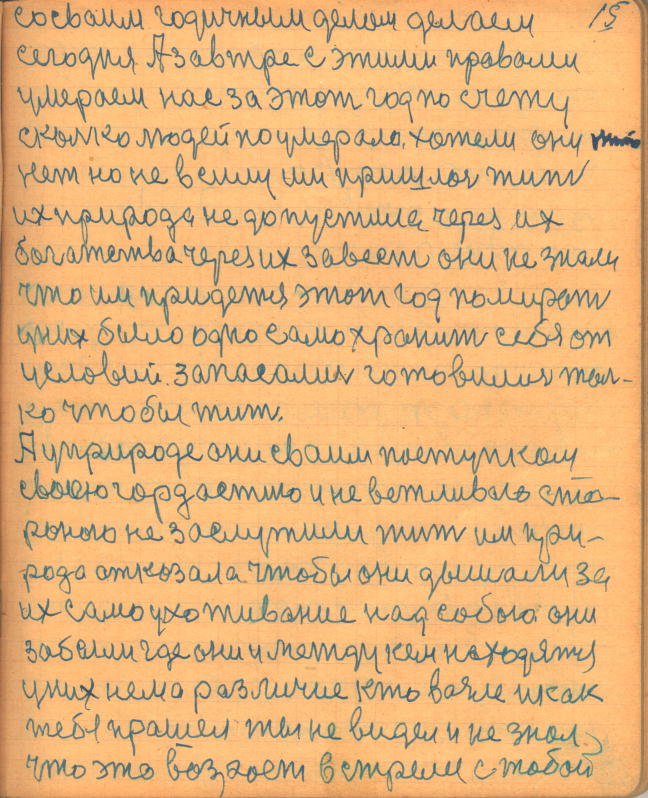 15
сосваим годичным делом делаем
сегодня А завтре с этими правами
умераем нас за этот год по счету
сколко людей поумерало, хотели они жить
нет но не всилу им пришлос жит
их природа не допустила через их
богатства через их завест они не знали
что им придется этот год помират
у них было одно само хранит себя от
условий запасалис готовилис тол-
ко чтобы жит.
А у природе они сваим поступком
своею гордастю и не вежливаю ста-
роною не заслужили жит им при-
рода отказала чтобы они дышали за
их само ухоживание над собою они
забыли где они и между кем находятся
у них нема различие кто возле и как
тебя прашел ты не видел и не знал
что это встрели с тобой